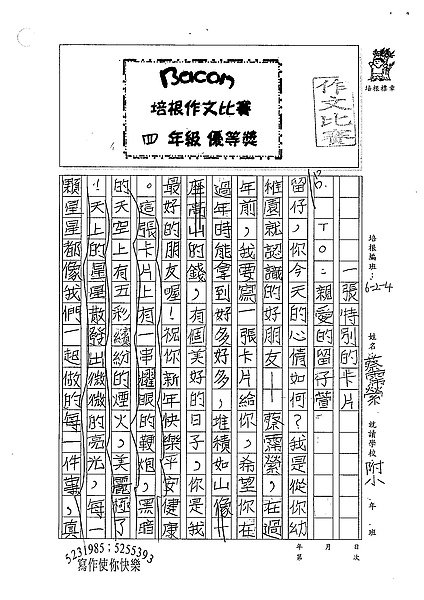 Bacon
培根作文比賽
四 年級 優等獎
作文比賽
培根標章
培根編班：6-2-4
姓名 蔡霈縈
就讀學校 附小 年 班
一張特別的卡片
TO：親愛的留仔萱
留仔，你今天的心情如何？我是從你幼
稚園就認識的好朋友—蔡霈縈，在過
年前，我要寫一張卡片給你，希望你在
過年時能拿到好多好多，堆積如山像十
座高山的錢，有個美好的日子，你是我
最好的朋友喔！祝你新年快樂平安健康
。這張卡片上有一串燿眼的鞭炮，黑暗
的天空上有五彩繽紛的煙火，美麗極了
！天上的星星散發出微微的亮光，每一
顆星星都像我們一起做的每一件事，真
年 月 日
第 次
5231985；5255393
寫作使你快樂